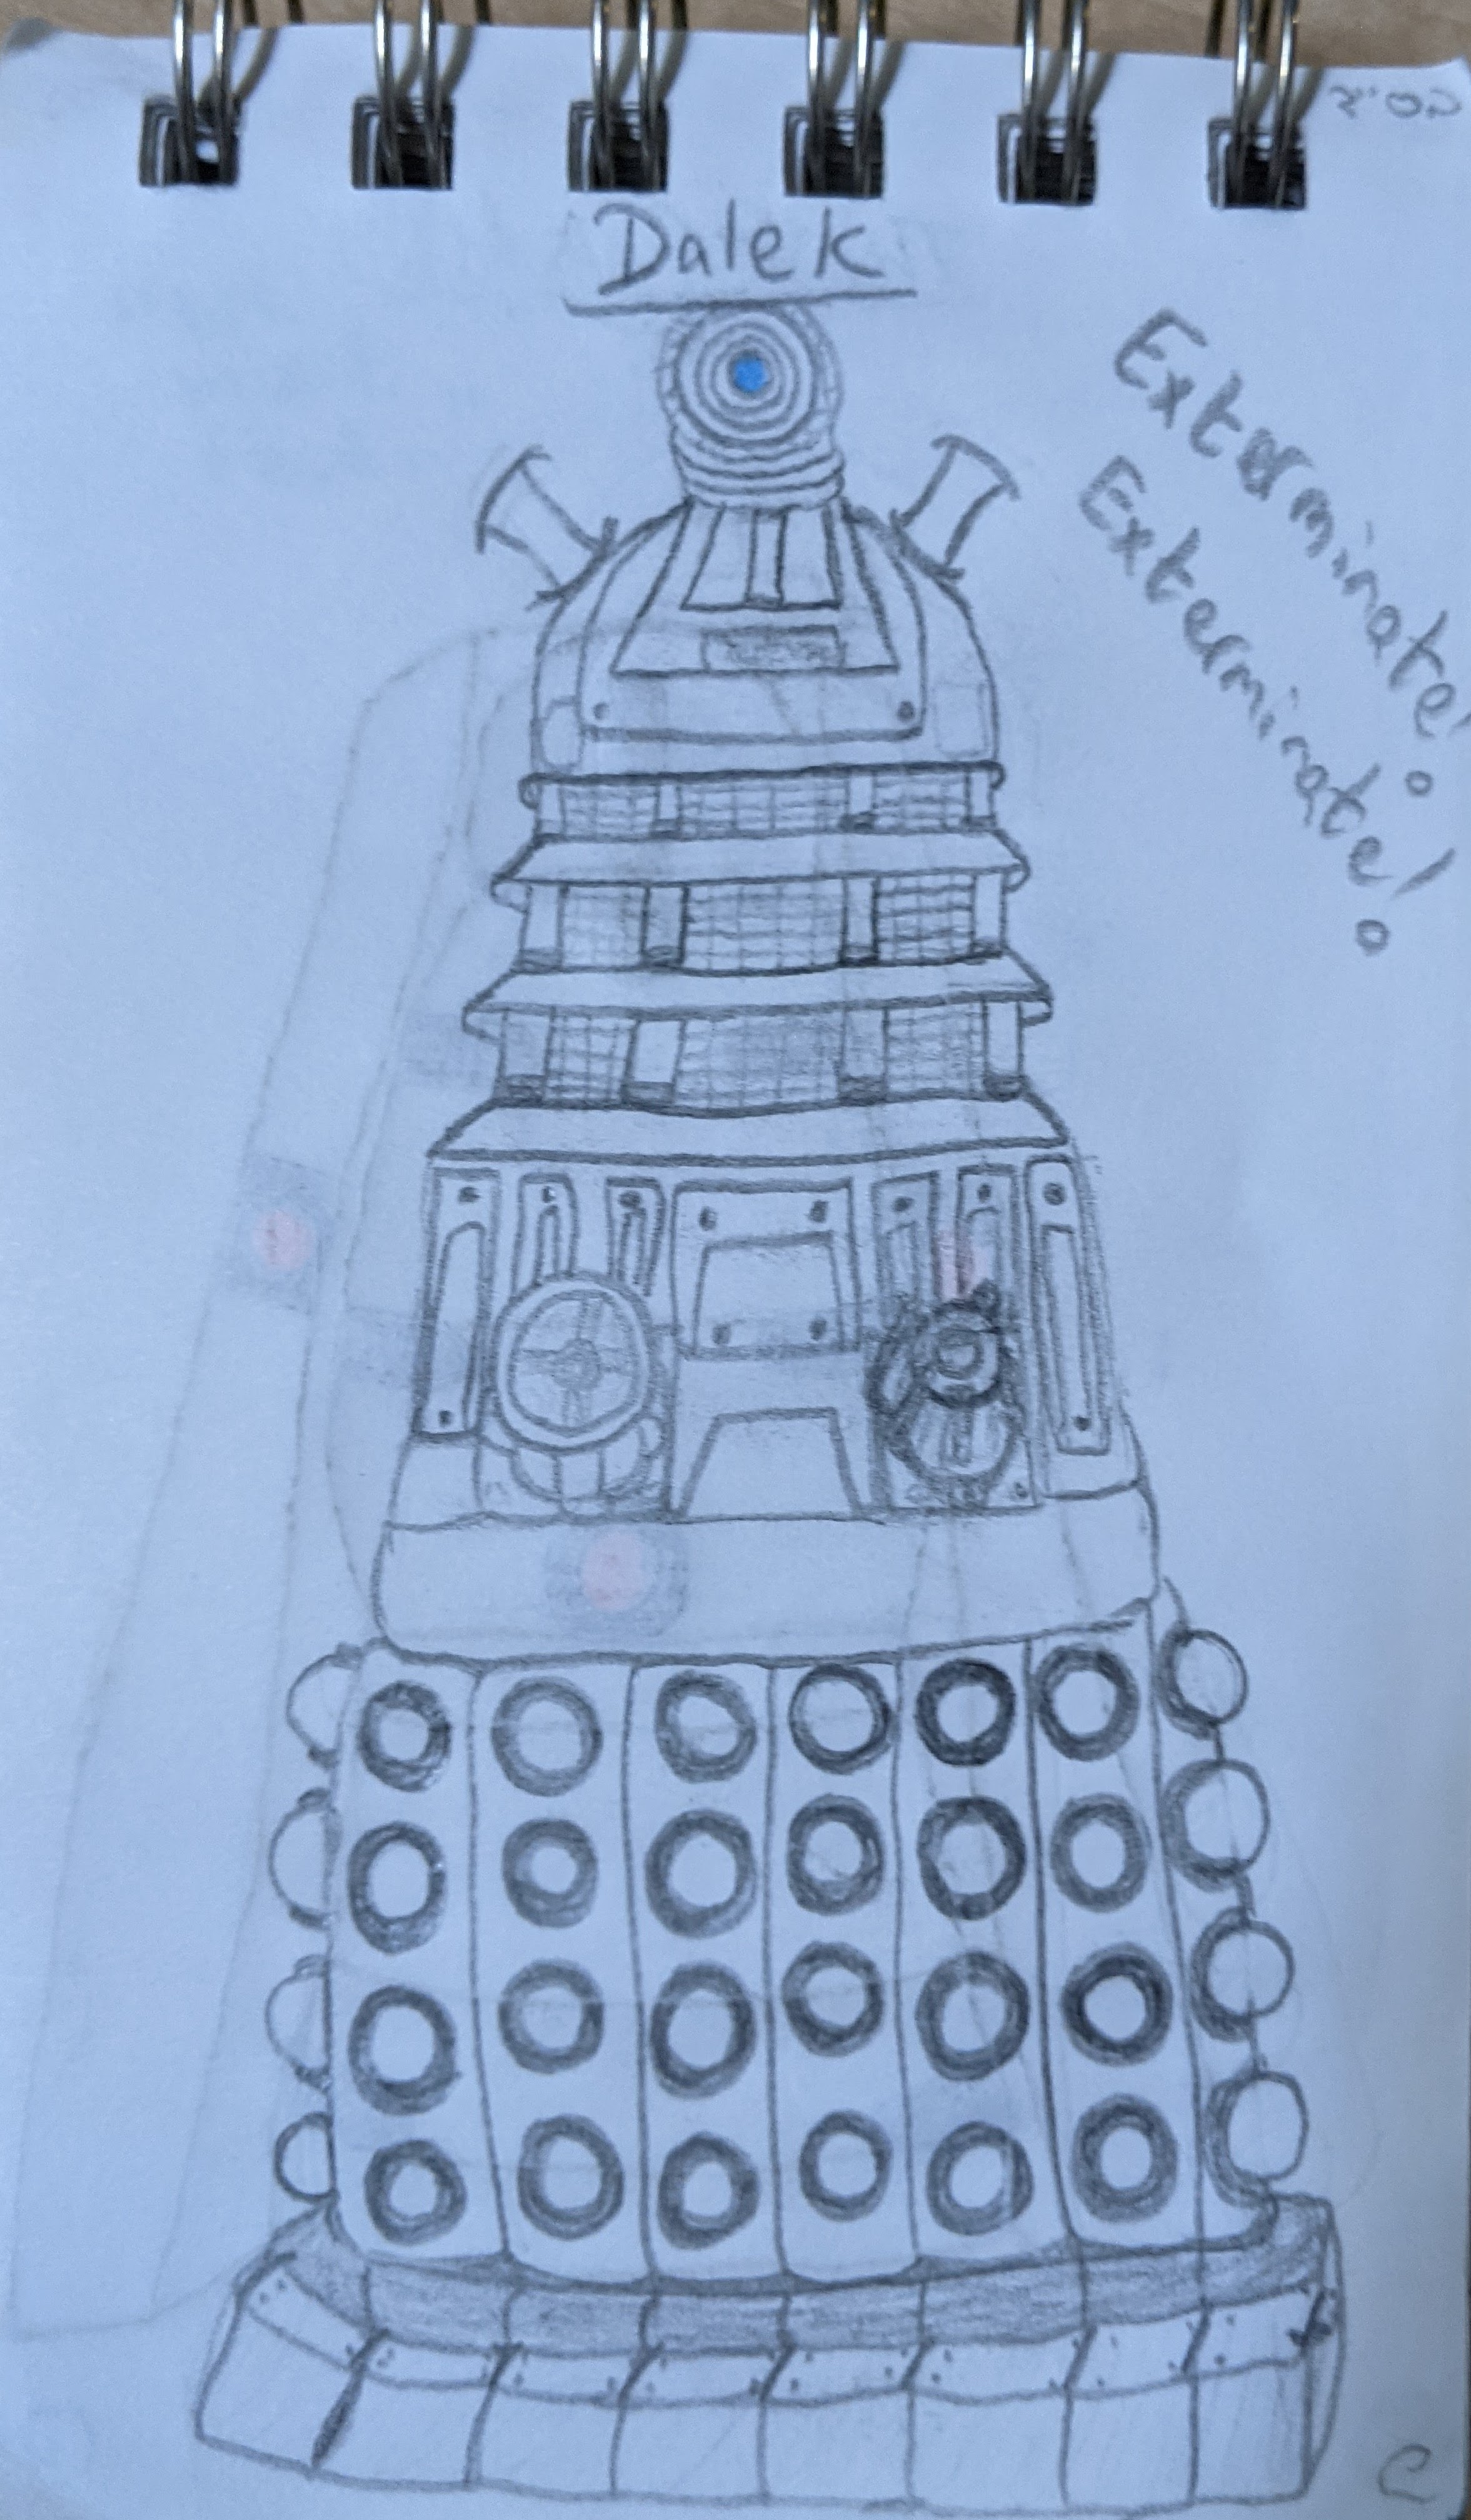 Dalek
Exterminate!
Exterminate!